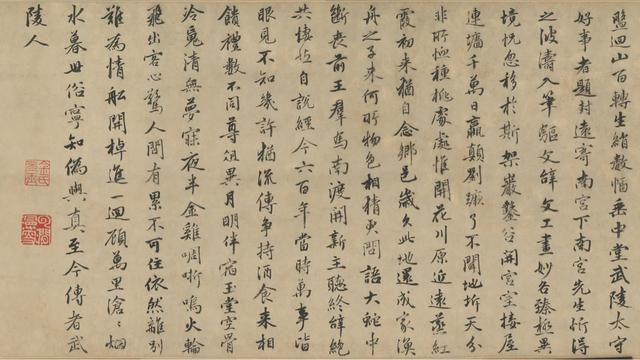 盤迴山百轉生綃數幅垂中堂武陵太守
好事者題封遠寄南宮下南宮先生忻得
之波濤入筆驅文辭文工畫妙各臻極異
境怳忽移於斯架巖鑿谷開宮室接屋
連墻千萬日嬴顛劉蹶了不聞地坼天分
非所恤種桃處處惟開花川原近遠蒸紅
霞初來猶自念鄉邑歲久此地還成家漁
舟之子來何所物色相猜更問語大蛇中
斷喪前王羣馬南渡開新主聽終辭絕
共悽然自說經今六百年當時萬事皆
眼見不知幾許猶流傳爭持酒食來相
饋禮數不同尊俎異月明伴宿玉堂空骨
冷䰟清無夢寐夜半金雞啁哳鳴火輪
飛出客心驚人間有累不可住依然離別
難為情船開棹進一迴顧萬里滄滄烟
水暮世俗寧知偽與真至今傳者武
陵人